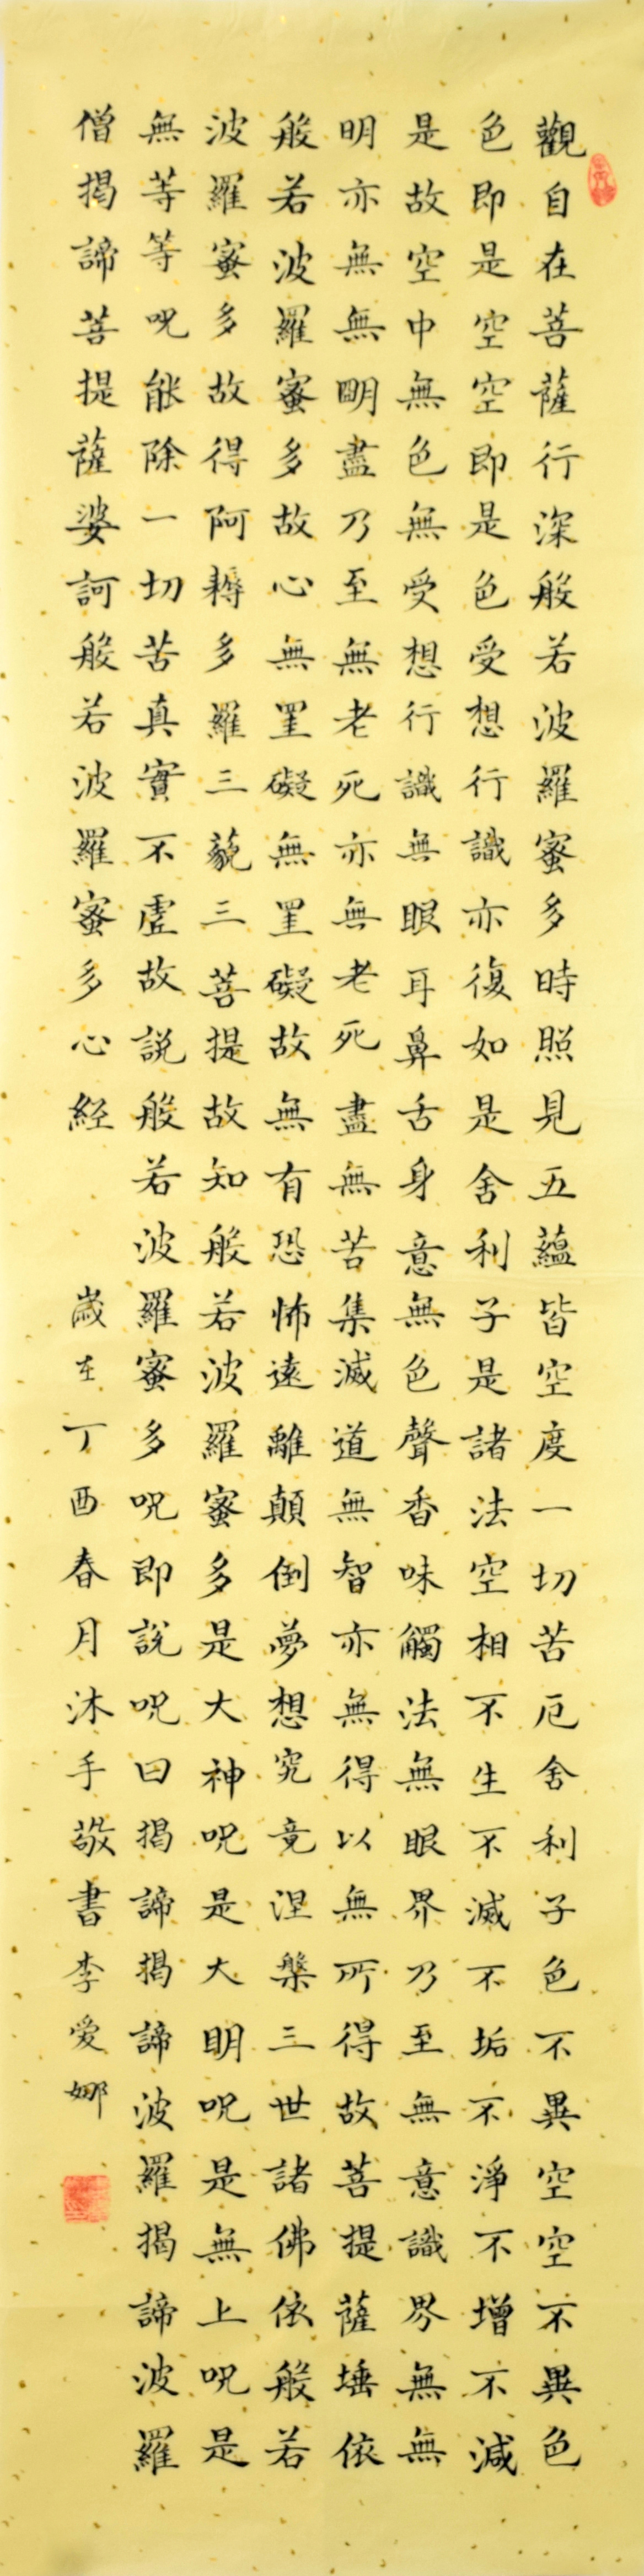 觀自在菩薩行深般若波羅蜜多時照見五蘊皆空度一切苦厄舍利子色不異空空不異色
色即是空空即是色受想行識亦復如是舍利子是諸法空相不生不滅不垢不淨不增不減
是故空中無色無受想行識無眼耳鼻舌身意無色聲香味觸法無眼界乃至無意識界無無
明亦無無明盡乃至無老死亦無老死盡無苦集滅道無智亦無得以無所得故菩提薩埵依
般若波羅蜜多故心無罣礙無罣礙故無有恐怖遠離顛倒夢想究竟涅槃三世諸佛依般若
波羅蜜多故得阿耨多羅三藐三菩提故知般若波羅蜜多是大神呪是大明呪是無上呪是
無等等呪能除一切苦真實不虛故説般若波羅蜜多呪即説呪曰揭諦揭諦波羅揭諦波羅
僧揭諦菩提薩婆訶般若波羅蜜多心経 歲在丁酉春月沐手敬書李愛娜